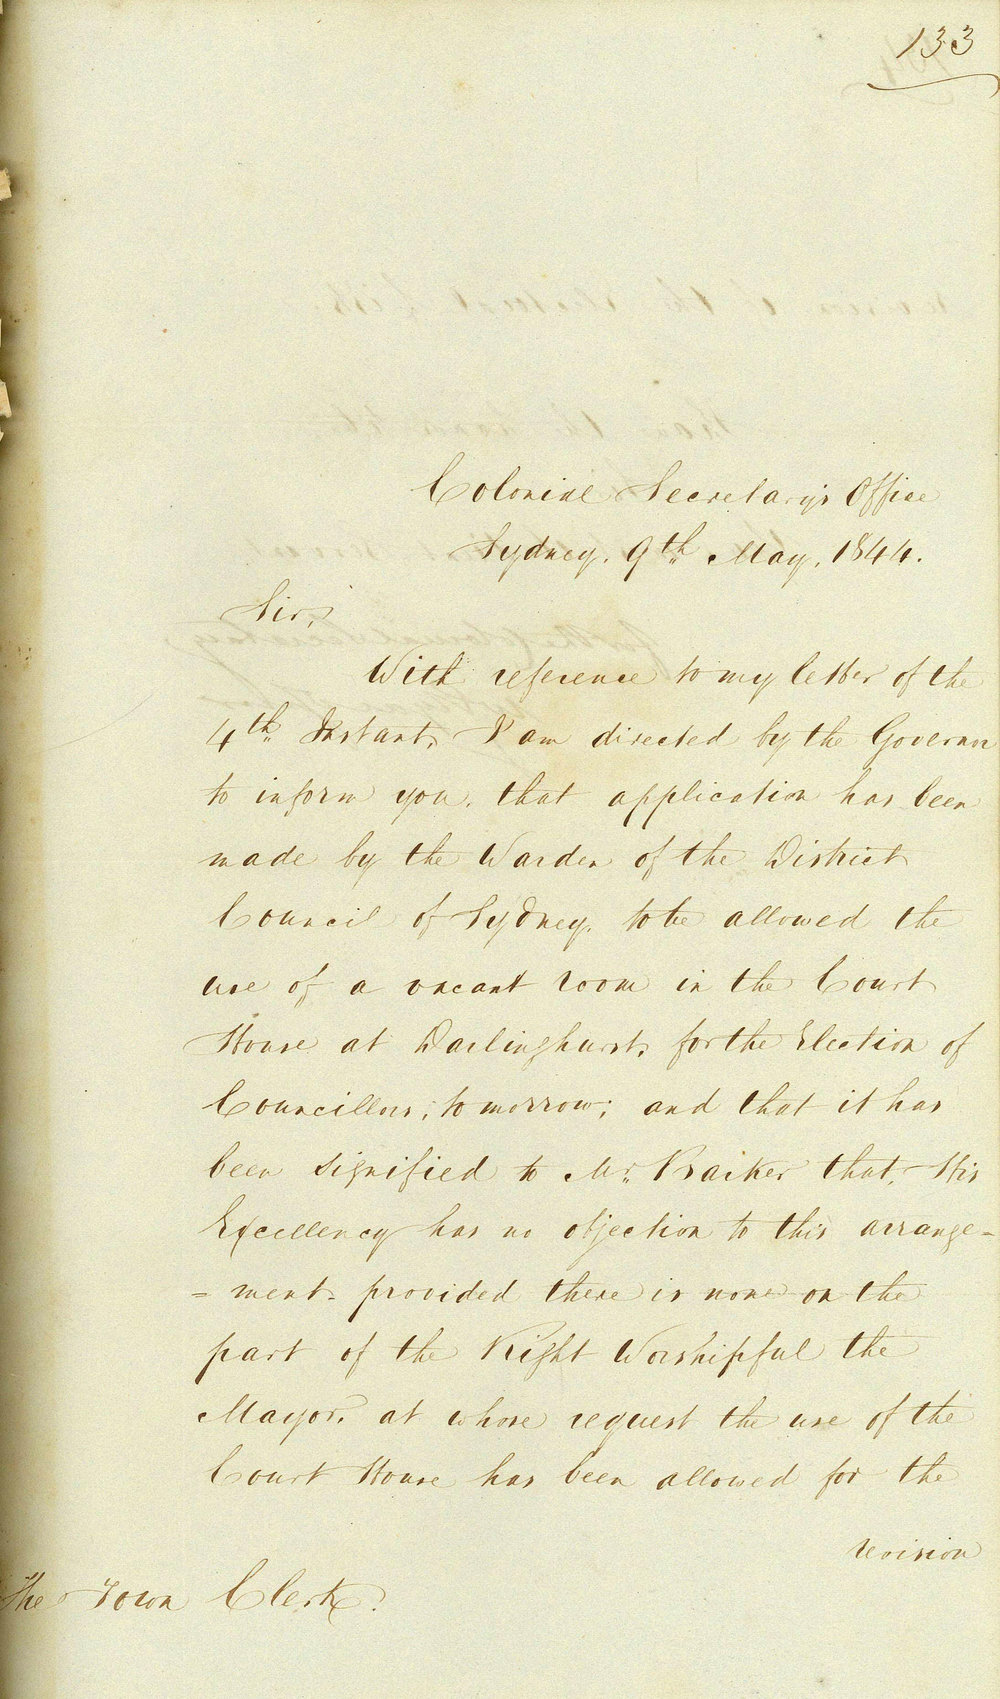 133
Colonial Secretary's Office
Sydney. 9th May, 1844.
Sir,
With reference to my letter of the
4th Instant, I am directed by the Governor
to inform you, that application has been
made by the Warden of the District
Council of Sydney, to be allowed the
use of a vacant room in the Court
House at Darlinghurst, for the Election of
Councillors, tomorrow; and that it has
been signified to Mr. Barker that, His
Excellency has no objection to this arrange=
=ment, provided there is none on the
part of the Right Worshipful the
Mayor, at whose request the use of the
Court House has been allowed for the
revision
The Town Clerk.